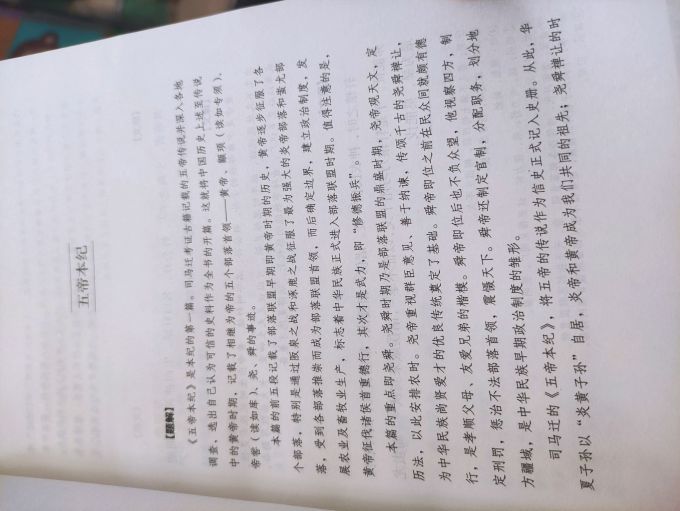 五帝本纪
【题解】
《五帝本纪》是本纪的第一篇。司马迁考证古籍记载的五帝传说并深入各地
调查，选出自己认为可信的史料作为全书的开篇。这就将中国历史上述至传说
中的黄帝时期，记载了相继为帝的五个部落首领——黄帝、颛顼（读如专须）、
帝喾（读如库）、尧、舜的事迹。
本篇的前五段记载了部落联盟早期即黄帝时期的历史，黄帝逐步征服了各
个部落，特别是通过阪泉之战和涿鹿之战征服了最为强大的炎帝部落和蚩尤部
落，受到各部落推崇而成为部落联盟首领，而后确定边界，建立政治制度，发
展农业及畜牧业生产，标志着中华民族正式进入部落联盟时期。值得注意的是，
黄帝征伐诸侯首重德行，其次才是武力，即“修德振兵”。
本篇的重点即尧舜。尧舜时期乃是部落联盟的鼎盛时期，尧帝观天文，定
历法，以此安排农时。尧帝重视群臣意见、善于纳谏，传颂千古的尧舜禅让，
为中华民族尚贤爱才的优良传统奠定了基础。舜帝即位之前在民众间就颇有德
行，是孝顺父母、友爱兄弟的楷模。舜帝即位后也不负众望，他视察四方，制
定刑罚，惩治不法部落首领，震慑天下。舜帝还制定官制，分配职务，划分地
方疆域，是中华民族早期政治制度的雏形。
司马迁的《五帝本纪》，将五帝的传说作为信史正式记入史册。从此，华
夏子孙以“炎黄子孙”自居，炎帝和黄帝成为我们共同的祖先；尧舜禅让的时